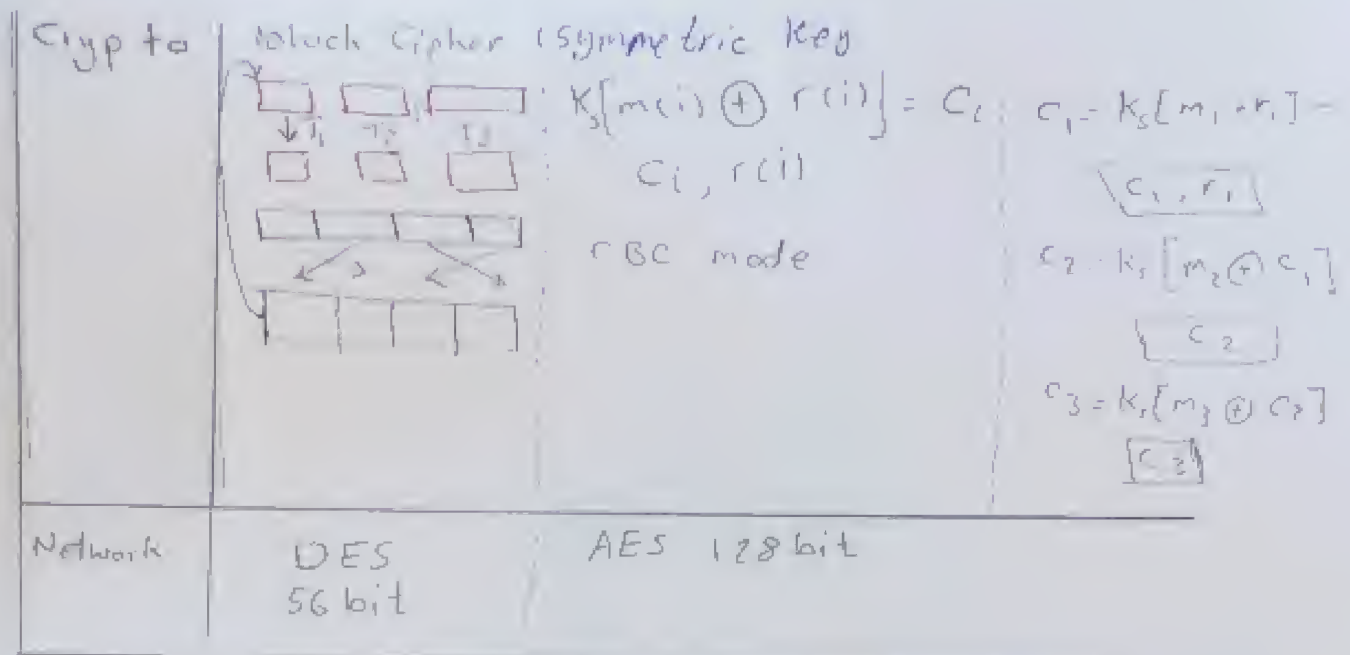 Crypto
Block Cipher (Symmetric Key
T₁ T₂ T₃
Kₛ[m(i) ⊕ r(i)] = Cᵢ
Cᵢ, r(i)
CBC mode
C₁ = Kₛ[m₁ + r₁] =
C₁, r₁
C₂ = Kₛ[m₂ ⊕ C₁]
C₂
C₃ = Kₛ[m₃ ⊕ C₂]
C₃
Network
DES
56 bit
AES 128 bit